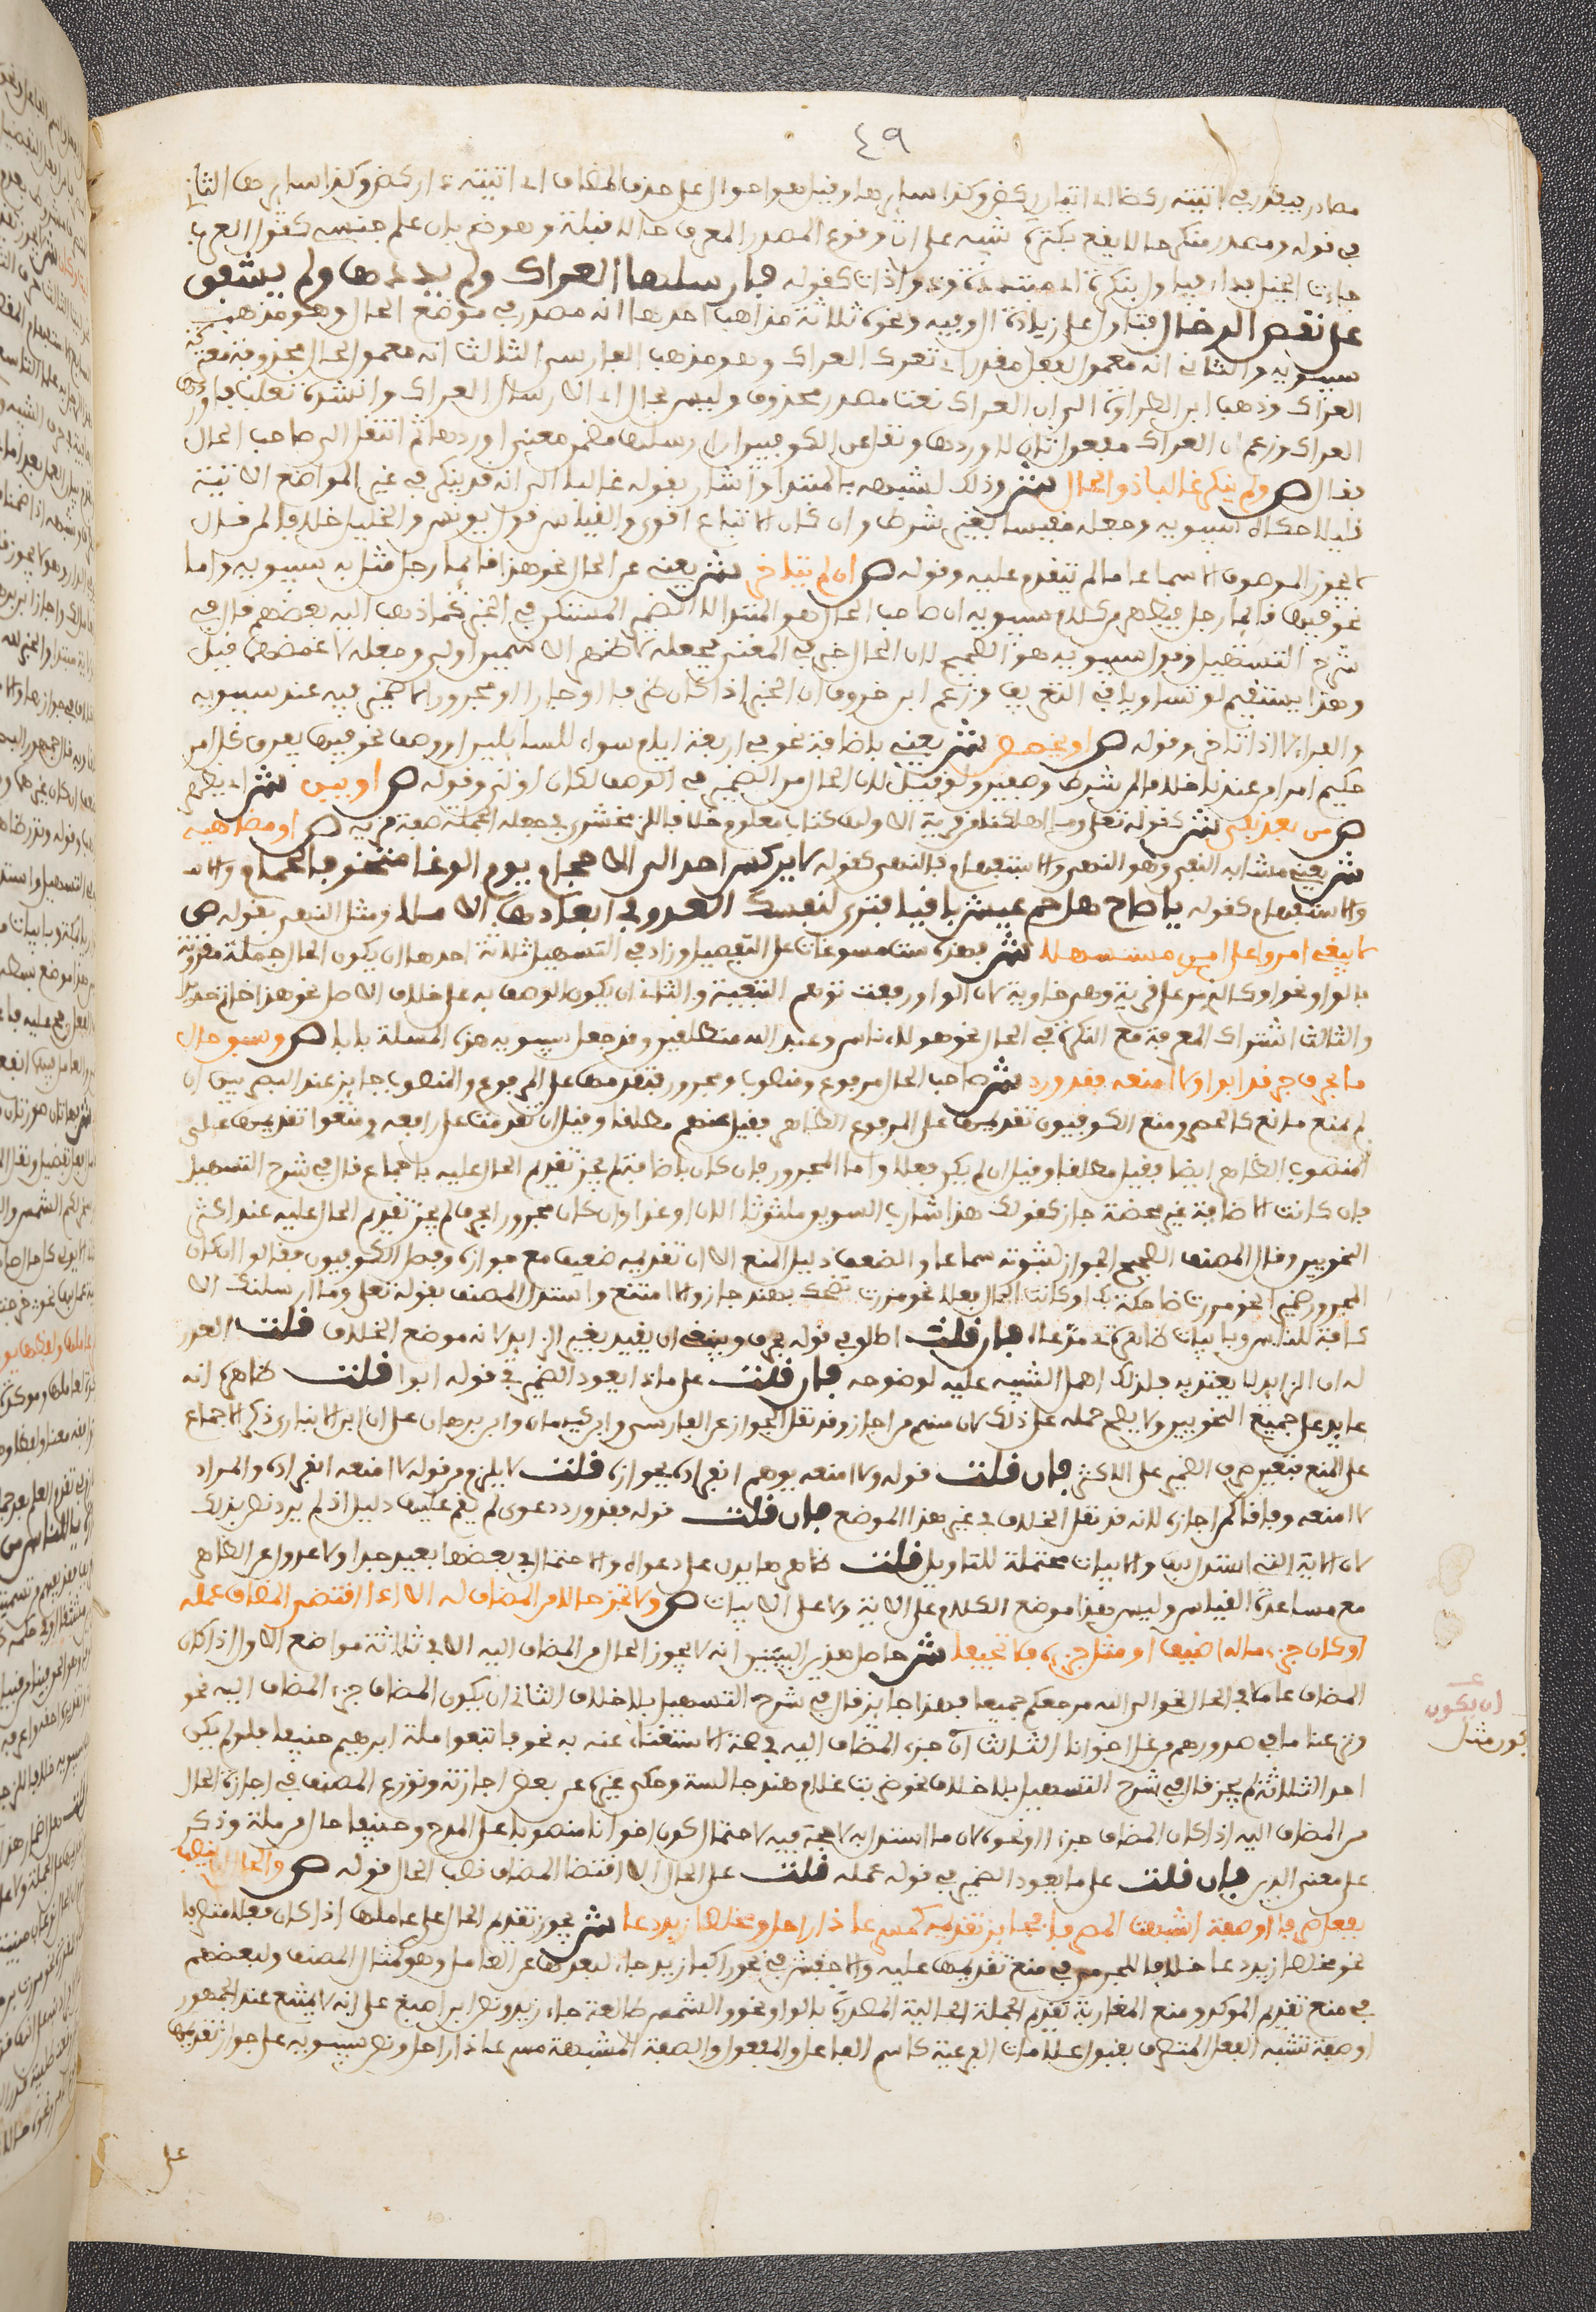 ٤٩
مصادر فيقدر في اتيته ركضا اتيان ركض وكذا سايرها وقيل هو احوال على حذف المضاف اي اتيته ذا ركض وكذا سايرها الثاني
في قوله ومصدر منكر حالا يقع بكثرة تنبيه على ان وقوع المصدر المعرف حالا قليلة وهو ضربان علم جنس كقول العرب
جاءت الخيل بداد فيتاول بنكرة اي متبددة وذو اداة كقوله فارسلها العراك ولم يذدها ولم يشفق
على نغص الدخال فيتاول على زيادة ال وفيه ونحوه ثلاثة مذاهب احدها انه مصدر في موضع الحال وهو مذهب
سيبويه والثاني انه معمول لفعل مقدر اي تعترك العراك وهو مذهب الفارسي الثالث انه معمول لحال محذوفة معتركة
العراك وذهب ابن الطراوة الى ان العراك نعت مصدر محذوف وليس بحال اي الارسال العراك وانشده ثعلب فاوردها
العراك وزعم ان العراك مفعول ثان لاوردها ونقل عن الكوفيين ان ارسلها مضمن معنى اوردها ثم انتقل الى صاحب الحال
فقال ص ولم ينكر غالبا ذو الحال ش وذلك لشبهه بالمبتدا واشار بقوله غالبا الى انه قد ينكر في غير المواضع الاتية
قليلا حكاه سيبويه وجعله مقيسا بغير شرط وان كان الاتباع اقوى والقياس قول يونس والخليل خلافا لمن قال
لا يجوز الموصوف الا سماعا ما لم يتقدم عليه وقوله ص ان لم يتاخر ش يعني عن الحال نحو هذا قائما رجل مثل به سيبويه واما
نحو فيها قائما رجل فظاهر كلام سيبويه ان صاحب الحال هو المبتدا لا الضمير المستكن في الخبر كما ذهب اليه بعضهم قال في
شرح التسهيل وقول سيبويه هو الصحيح لان الحال خبر في المعنى فجعله لاظهر الاسمين اولى وجعله لاغمضهما قيل
وهذا يستقيم لو تساويا في التعريف وزعم ابن خروف ان الخبر اذا كان ظرفا او جارا او مجرورا لا ضمير فيه عند سيبويه
والفراء الا اذا تاخر وقوله ص او يخصص ش يعني باضافة نحو في اربعة ايام سواء للسايلين او وصف نحو فيها يفرق كل امر
حكيم امرا من عندنا خلافا لمن شرط وصفين ولو قيل لان الحال من الضمير في الوصف لكان اولى وقوله ص او يبن ش اي يظهر
ص من بعد نفي ش كقوله تعلى وما اهلكنا من قرية الا ولها كتاب معلوم خلافا للزمخشري في جعله الجملة صفة قرية ص او مضاهيه
ش يعني مشابه النفي وهو النهي والاستفهام فالنهي كقوله لا يركنن احد الى الاحجام يوم الوغا متخوفا لحمام والا
والاستفهام كقوله يا صاح هل حم عيش باقيا فترى لنفسك العذر في ابعادها الاملا ومثل النهي بقوله ص
لا يبغ امرؤ على امرئ مستسهلا ش فهذه ست مسوغات على التفصيل وزاد في التسهيل ثلاثة احدها ان يكون الحال جملة مقرونة
بالواو نحو او كالذي مر على قرية وهي خاوية لان الواو رفعت توهم النعتية والثاني ان يكون الوصف به على خلاف الاصل نحو هذا خاتم حديدا
والثالث اشتراك المعرفة مع النكرة في الحال نحو هؤلاء ناس وعبد الله منطلقين وقد جعل سيبويه هذه المسلة بابا ص وسبق حال
ما بحرف جر قد ابوا ولا امنعه فقد ورد ش صاحب الحال مرفوع ومنصوب ومجرور فتقدمها على المرفوع والمنصوب جايز عند البصريين ان
لم يمنع مانع كالحصر ومنع الكوفيون تقديمها على المرفوع الظاهر فقيل عنهم مطلقا وقيل ان تقدمت على رافعه ومنعوا تقديمها على
المنصوب الظاهر ايضا فقيل مطلقا وقيل ان لم يكن فعلا واما المجرور فان كان باضافة لم يجز تقديم الحال عليه باجماع قال في شرح التسهيل
فان كانت الاضافة غير محضة جاز كقولك هذا شارب السويق ملتوتا الان او غدا وان كان مجرورا بحرف لم يجز تقديم الحال عليه عند اكثر
النحويين وقال المصنف الصحيح الجواز لثبوته سماعا ولضعف دليل المنع الا ان تقديمه ضعيف مع جوازه وفصل الكوفيون فقالوا ان كان
المجرور ضمير نحو مررت ضاحكة بك او كانت الحال فعلا نحو مررت تضحك بهند جاز والا امتنع واستدل المصنف بقوله تعلى وما ارسلنك الا
كافة للناس وبابيات ظاهرة في مدعاه فان قلت اطلق في قوله بحرف وينبغي ان يقيد بغير الزايد لانه موضع الخلاف قلت العذر
له ان الزايد لا يعتد به فلذلك اهمل التنبيه عليه لوضوحه فان قلت على ماذا يعود الضمير في قوله ابوا قلت ظاهره انه
عايد على جميع النحويين ولا يصح حمله على ذلك لان منهم من اجاز وقد نقل الجواز عن الفارسي وابن كيسان وابن برهان على ان ابن الانباري ذكر الاجماع
على المنع فتعين صرف الضمير على الاكثر فان قلت قوله ولا امنعه يوهم انفراده بجوازه قلت لا يلزم من قوله لا امنعه انفراده والمراد
لا امنعه وفاقا لمن اجازه لانه قد نقل الخلاف في غير هذا الموضع فان قلت قوله فقد ورد دعوى لم يقم عليها دليلا اذ لم يرد نص بذلك
لان الاية التي استدل بها والابيات محتملة للتاويل قلت ظاهرها يدل على دعواه والاحتمال في بعضها بعيد جدا ولا عدول عن الظاهر
مع مساعدة القياس وليس هذا موضع الكلام على الاية ولا على الابيات ص ولا تجز حالا من المضاف له الا اذا اقتضى المضاف عمله
او كان جزء ما له اضيفا او مثل جزئه فلا تحيفا ش حاصل هذين البيتين انه لا يجوز الحال من المضاف اليه الا في ثلاثة مواضع الاول اذا كان
المضاف عاملا في الحال نحو الى الله مرجعكم جميعا فهذا جايز قال في شرح التسهيل بلا خلاف الثاني ان يكون المضاف جزء المضاف اليه نحو
ونزعنا ما في صدورهم من غل اخوانا الثالث كان جزء المضاف اليه في صحة الاستغناء عنه به نحو فاتبعوا ملة ابرهيم حنيفا فلو لم يكن
احد الثلاثة لم يجز قال في شرح التسهيل بلا خلاف نحو ضربت غلام هند جالسة وحكى غيره عن بعض اجازته ونوزع المصنف في اجازة الحال
من المضاف اليه اذا كان المضاف جزءا او نحوه لان ما استدل به لا حجة فيه لاحتمال كون اخوانا منصوبا على المدح وحنيفا حال من ملة وذكر
على معنى الدين فان قلت على ما يعود الضمير في قوله عمله قلت على الحال اي الا اقتضا المضاف نصب الحال قوله ص والحال ان ينصب
بفعل صرفا او صفة اشبهت المصرفا فجايز تقديمه كمسرعا ذا راحل ومخلصا زيد دعا ش يجوز تقديم الحال على عاملها اذا كان فعلا متصرفا
نحو مخلصا زيد دعا خلافا للجرمي في منع تقديمها عليه والاخفش في نحو راكبا زيد جاء لبعدها عن العامل وهو كمثال المصنف ولبعضهم
في منع تقديم الموكد ومنع المغاربة تقديم الجملة الحالية المصدرة بالواو نحو والشمس طالعة جاء زيد ونص ابن اصبغ على انه لا يمتنع عند الجمهور
او صفة تشبه الفعل المتصرف بقبول علامات الفرعية كاسم الفاعل والمفعول والصفة المشبهة مسرعا ذا راحل ونص سيبويه على جواز تقديمها
على
ان يكون